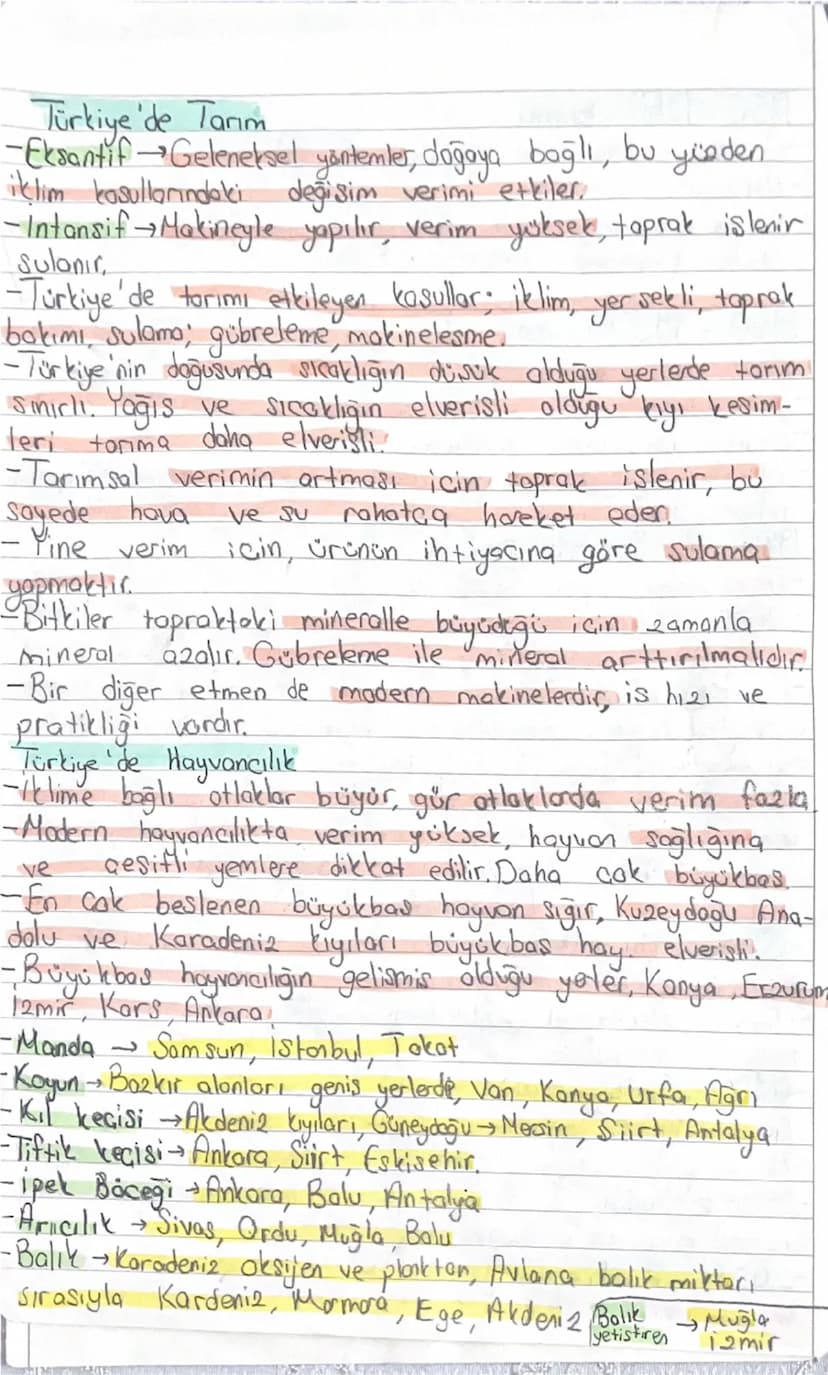 Türkiye'de Tarım
-Eksantif →Geleneksel yöntemler, doğaya bağlı, bu yüzden
iklim kosullarındaki değisim verimi etkiler.
-Intansif →Makineyle yapılır, verim yüksek, toprak islenir
sulanır.
-Türkiye'de tarımı etkileyen kosullar; iklim, yer sekli, toprak
bakımı, sulama; gübreleme, makinelesme.
-Türkiye'nin doğusunda sıcaklığın düsük olduğu yerlerde tarım
sınırlı. Yağıs ve sıcaklığın elverisli olduğu kıyı kesim-
leri tarıma daha elverişli.
-Tarımsal verimin artması icin toprak islenir, bu
sayede hava ve su rahatca hareket eder.
- Yine verim icin, ürünün ihtiyacına göre sulama
yapmaktır.
-Bitkiler topraktaki mineralle büyüdüğü icin zamanla
mineral azalır. Gübreleme ile mineral arttırılmalıdır.
-Bir diğer etmen de modern makinelerdir, is hızı ve
pratikliği vardır.
Türkiye'de Hayvancılık
-Iklime bağlı otlaklar büyür, gür otlaklarda verim fazla
-Modern hayvancılıkta verim yüksek, hayvan sağlığına
ve cesitli yemlere dikkat edilir. Daha cok büyükbas.
-En cok beslenen büyükbas hayvan sığır, Kuzeydoğu Ana-
dolu ve Karadeniz kıyıları büyükbas hay. elverisli.
-Büyükbas hayvancılığın gelismis olduğu yerler, Konya, Erzurum
izmir, Kars, Ankara
-Manda → Samsun, istanbul, Tokat
-Koyun → Bozkır alanları genis yerlerde, Van, Konya, Urfa, Ağrı
-Kıl kecisi →Akdeniz kıyıları, Güneydoğu → Mersin, Siirt, Antalya
-Tiftik kecisi → Ankara, Siirt, Eskisehir.
-ipek Böceği → Ankara, Bolu, Antalya
-Arıcılık → Sivas, Ordu, Muğla, Bolu
-Balık → Karadeniz oksijen ve plankton, Avlana balık miktarı
sırasıyla Kardeniz, Marmara, Ege, Akdeniz
Balık yetistiren → Muğla
izmir